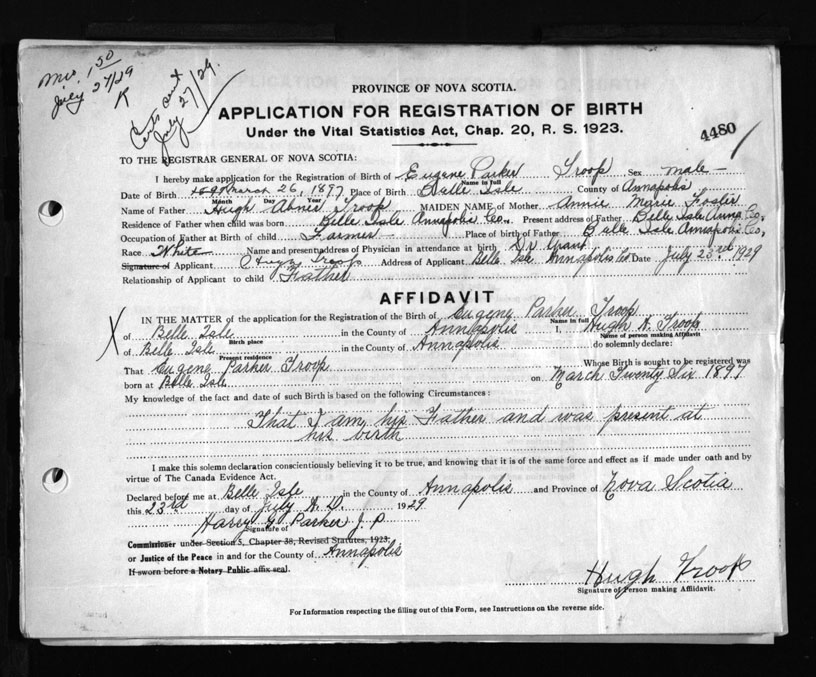 Mis. 1 50
July 27/29
R
Certs sent
July 27/29.
PROVINCE OF NOVA SCOTIA.
APPLICATION FOR REGISTRATION OF BIRTH
Under the Vital Statistics Act, Chap. 20, R. S. 1923.
4480
TO THE REGISTRAR GENERAL OF NOVA SCOTIA:
I hereby make application for the Registration of Birth of Eugene Parker Troop Sex male
Name in full
Date of Birth March 26, 1897 Place of Birth Belle Isle County of Annapolis
Month Day Year
Name of Father Hugh Abner Troop MAIDEN NAME of Mother Annie Marie Foster
Residence of Father when child was born Belle Isle Annapolis Co. Present address of Father Belle Isle Anna Co.
Occupation of Father at Birth of child Farmer Place of birth of Father Belle Isle Annapolis Co,
Race White Name and present address of Physician in attendance at birth Dr
Signature of Applicant Hugh Troop Address of Applicant Belle Isle Annapolis Co Date July 23rd 1929
Relationship of Applicant to child Father
AFFIDAVIT
IN THE MATTER of the application for the Registration of the Birth of Eugene Parker Troop
Name in full
X of Belle Isle in the County of Annapolis I, Hugh A. Troop
Birth place Name of person making Affidavit
of Belle Isle in the County of Annapolis do solemnly declare:
Present residence
That Eugene Parker Troop Whose Birth is sought to be registered was
born at Belle Isle on March Twenty Six 1897
My knowledge of the fact and date of such Birth is based on the following Circumstances:
That I am his Father and was present at
his birth
I make this solemn declaration conscientiously believing it to be true, and knowing that it is of the same force and effect as if made under oath and by
virtue of The Canada Evidence Act.
Declared before me at Belle Isle in the County of Annapolis and Province of Nova Scotia
this 23rd day of July A. D. 1929
Harry G Parker J. P
Signature of
Commissioner under Section 5, Chapter 38, Revised Statutes, 1923;
or Justice of the Peace in and for the County of Annapolis
If sworn before a Notary Public affix seal.
Hugh Troop
Signature of Person making Affidavit.
For Information respecting the filling out of this Form, see Instructions on the reverse side.